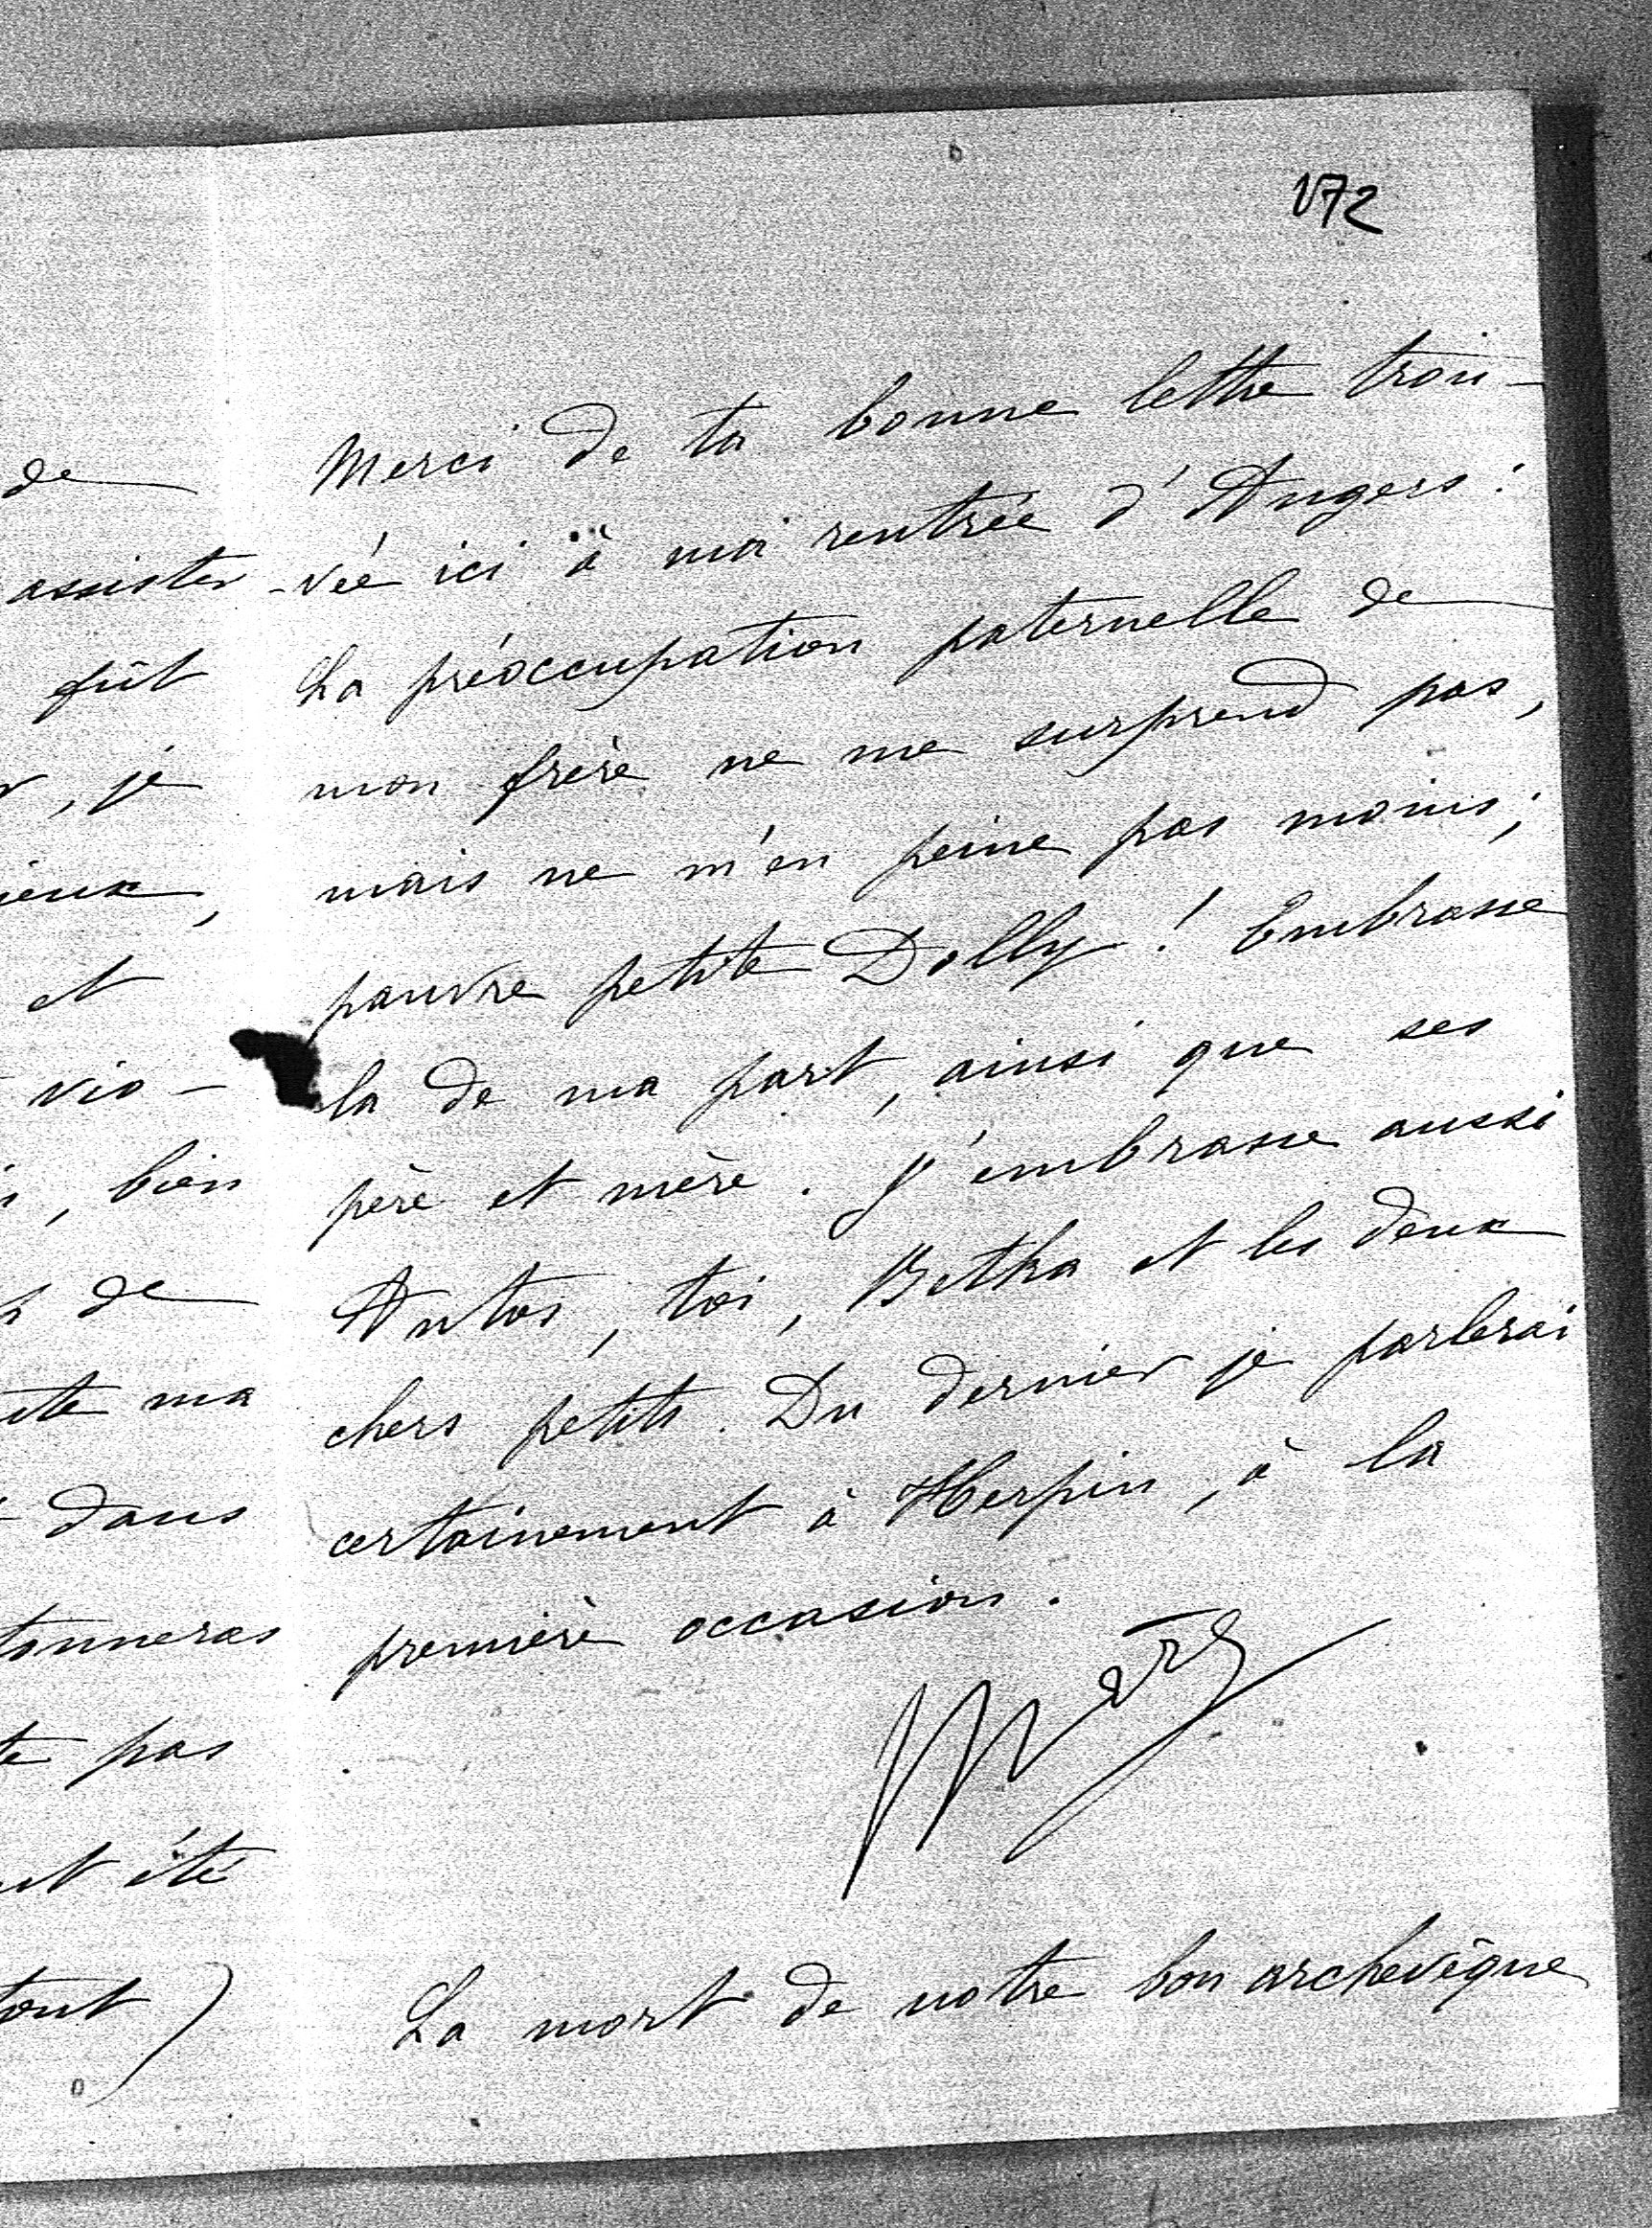 172
de
assister
fût
, je
ieux,
et
vio-
, bien
de
ute ma
dans
tonneras
te pas
nt été
tout)
Merci de ta bonne lettre trou-
-vée ici à ma rentrée d'Angers:
La préoccupation paternelle de
mon frère ne me surprend pas,
mais ne m'en peine pas moins;
pauvre petite Dolly! Embrasse
la de ma part, ainsi que ses
père et mère. J'embrasse aussi
Antos, toi, Betka et les deux
chers petits. Du dernier je parlerai
certainement à Herpin, à la
première occasion.
La mort de notre bon archevêque